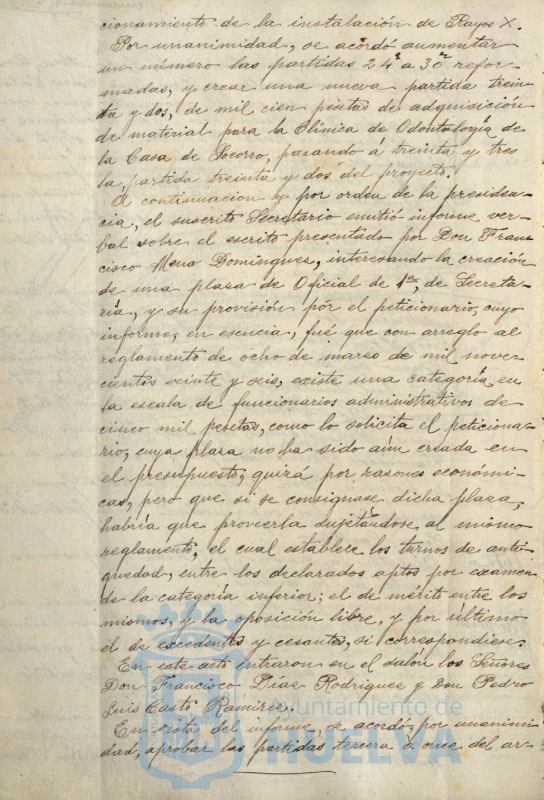 cionamiento de la instalación de Rayos X.
Por unanimidad, se acordó aumentar
un número las partidas 24ª a 30ª refor-
madas, y crear una nueva partida trein-
ta y dos, de mil cien pesetas de adquisición
de material para la Clínica de Odontología de
la Casa de Socorro, pasando á treinta y tres
la partida treinta y dos del proyecto.
A continuacion y por orden de la presiden-
cia, el suscrito Secretario emitió informe ver-
bal sobre el escrito presentado por Don Fran-
cisco Mena Domingues, interesando la creación
de una plasa de Oficial de 1ª, de Secreta-
ría, y su provisión pór el peticionario, cuyo
informe, en esencia, fué que con arreglo al
reglamento de ocho de marso de mil nove-
cientos veinte y seis, existe una categoría en
la escala de funcionarios administrativos de
cinco mil pesetas, como lo solicita el peticiona-
rio, cuya plaza no ha sido aún creada en
el presupuesto, quizá por rasones económi-
cas, pero que si se consignase dicha plaza,
habría que proveerla sujetándose al mismo
reglamento, el cual establece los turnos de anti-
guedad, entre los declarados aptos por examen
de la categoría inferior; el de mérito entre los
mismos, y la oposición libre, y por último
el de excedentes y cesantes, si correspondiese.
En este acto entraron en el salón los Señores
Don Francisco Díaz Rodriguez y Don Pedro
Luis Casto Ramírez.
En vista del informe, se acordó, por unanimi-
dad, aprobar las partidas tercera a once del ar-
Ayuntamiento de
HUELVA